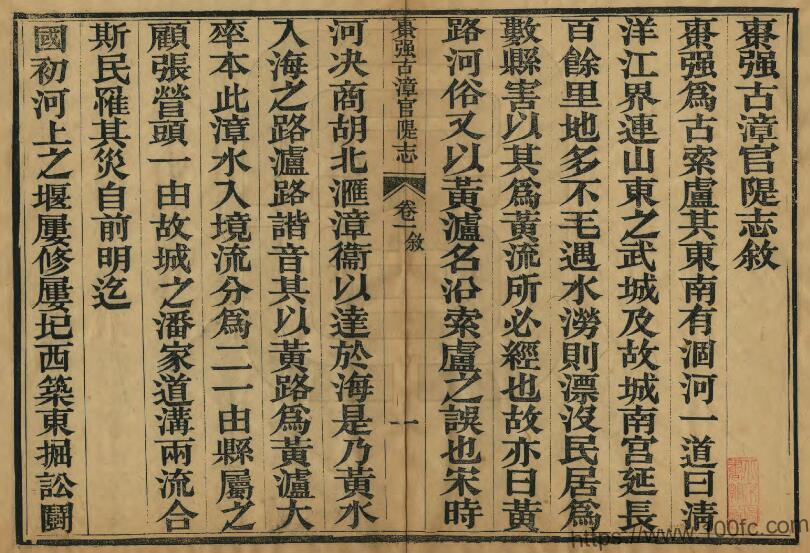 棗强古漳官隄志敘
棗强爲古索盧其東南有涸河一道曰清
洋江界連山東之武城及故城南宮延長
百餘里地多不毛遇水澇則漂沒民居爲
數縣害以其爲黃流所必經也故亦曰黃
路河俗又以黃瀘名沿索盧之誤也宋時
棗强古漳官隄志
卷一
敘
一
河决商胡北滙漳衞以達於海是乃黃水
入海之路瀘路諧音其以黃路爲黃瀘大
率本此漳水入境流分爲二一由縣屬之
顧張營頭一由故城之潘家道溝兩流合
斯民罹其災自前明迄
國初河上之堰屢修屢圮西築東掘訟鬭
https://www.700fc.com